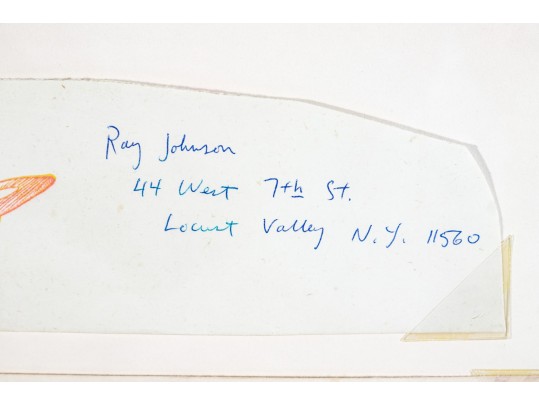 Ray Johnson
44 West 7th St.
Locust Valley N.Y. 11560